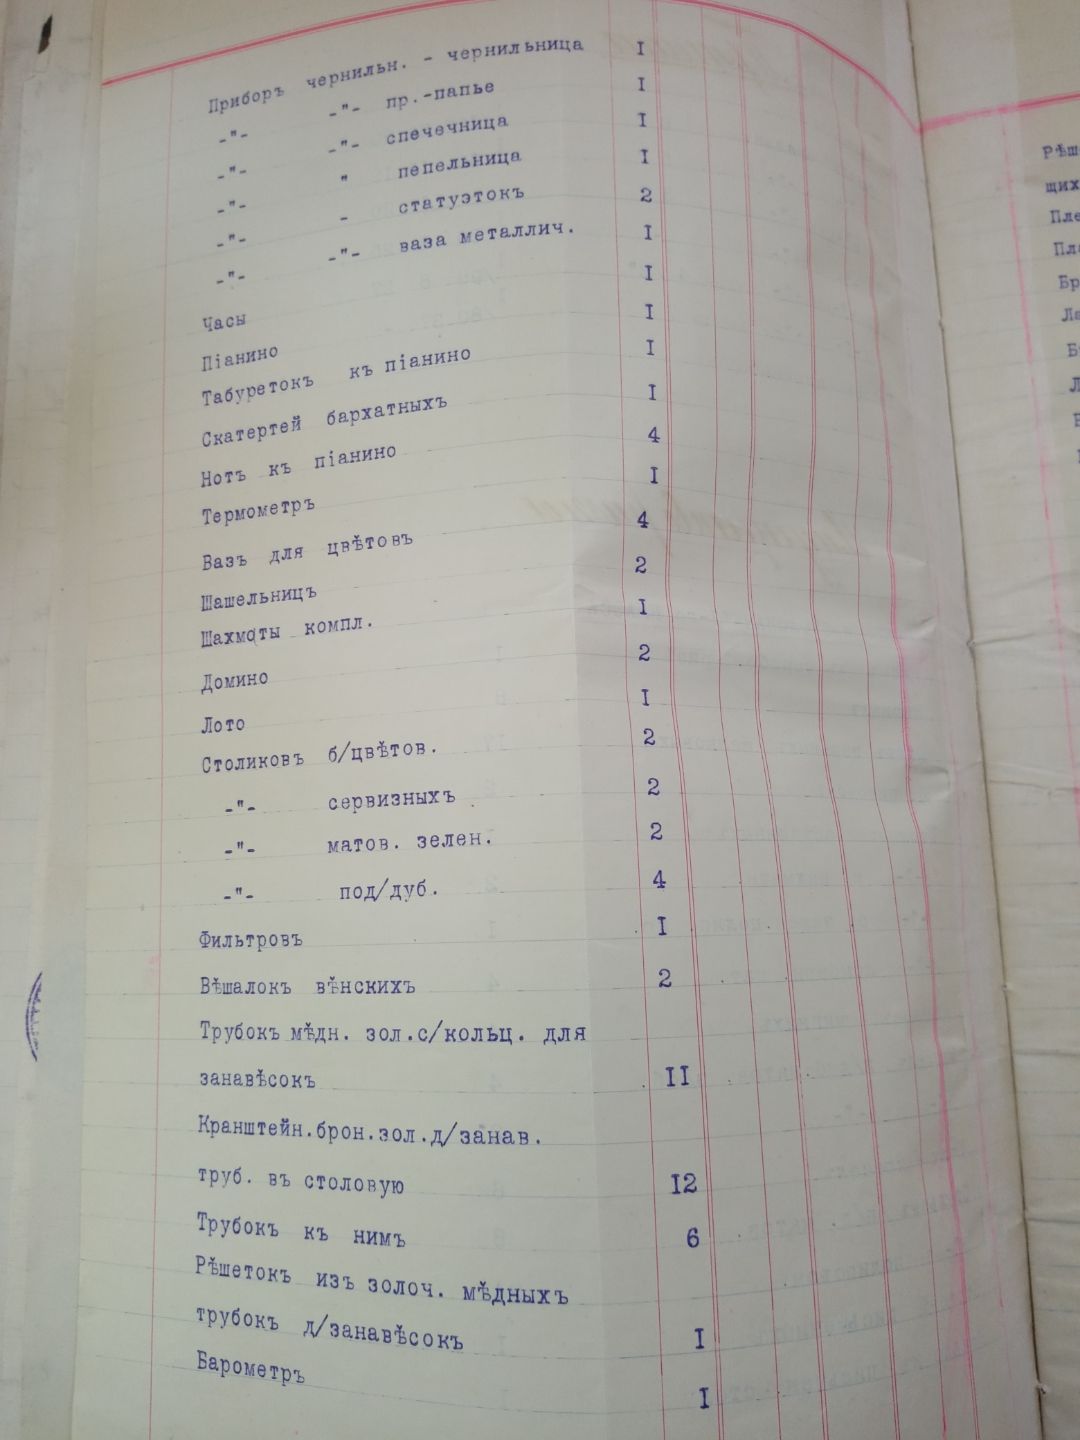 Приборъ чернильн. - чернильница I
-"- -"- пр.-папье I
-"- -"- спечечница I
-"- " пепельница I
-"- - статуэтокъ 2
-"- -"- ваза металлич. I
Часы I
Піанино I
Табуретокъ къ піанино I
Скатертей бархатныхъ I
Нотъ къ піанино 4
Термометръ I
Вазъ для цвѣтовъ 4
Шашельницъ 2
Шахматы компл. I
Домино 2
Лото I
Столиковъ б/цвѣтов. 2
-"- сервизныхъ 2
-"- матов. зелен. 2
-"- под/дуб. 4
Фильтровъ I
Вѣшалокъ вѣнскихъ 2
Трубокъ мѣдн. зол.с/кольц. для
занавѣсокъ II
Кранштейн.брон.зол.д/занав.
труб. въ столовую I2
Трубокъ къ нимъ 6
Рѣшетокъ изъ золоч. мѣдныхъ
трубокъ д/занавѣсокъ I
Барометръ I
Рѣш
щих
Пле
Бр